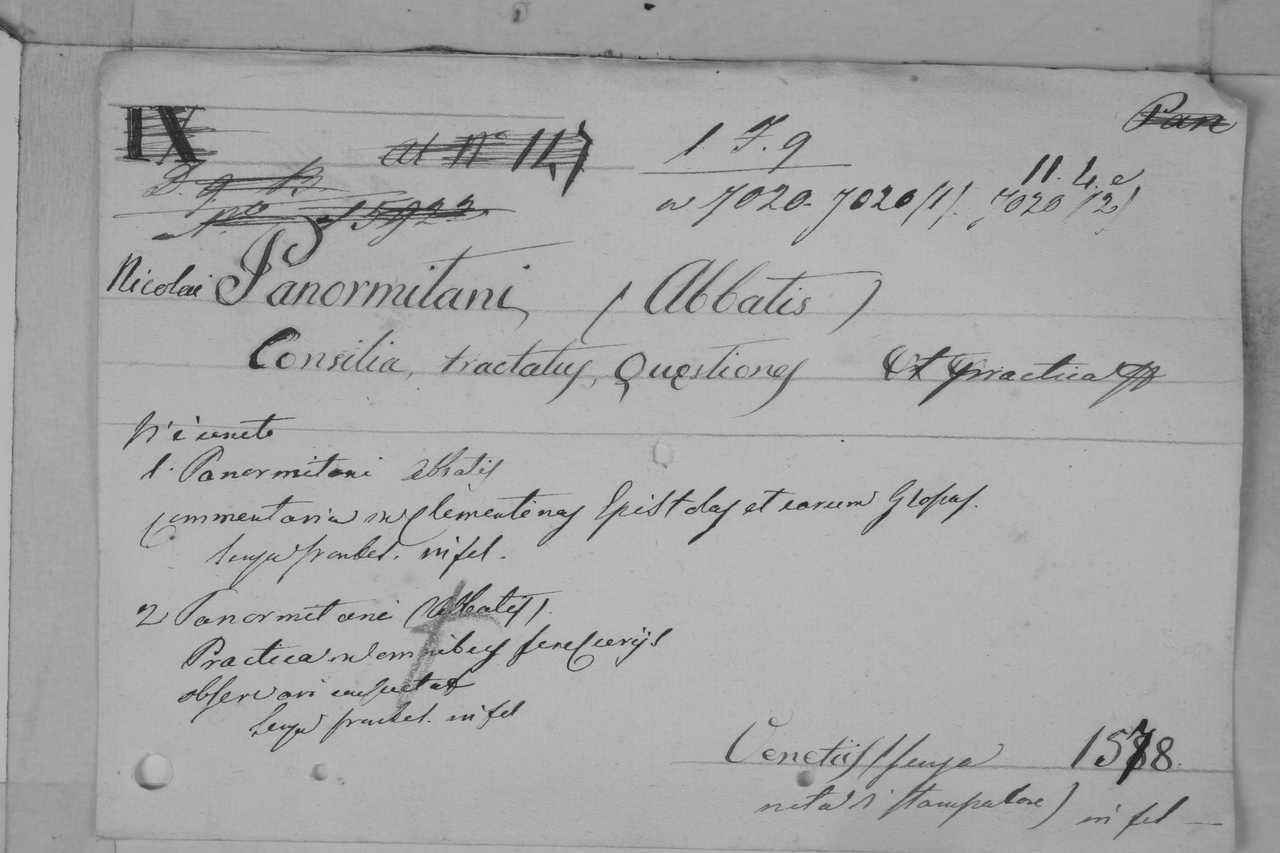 IX at N° 11,7 1 F. 9 Pan
D. 9. 11. 4. e
N° 15922 a 7020 - 7020 (1). 7020 (2)
Nicolai Panormitani (Abbatis)
Consilia, tractatus, Questiones et Practica
Vi è unito
1. Panormitani abbatis
Commentaria in Clementinas Epistolas et earum Glosas.
Senza frontes. in fol.
2 Panormitani (Abbatis).
Practica in omnibus fere Curijs
observari consueta
Senza frontes. in fol
Venetiis (senza 1578.
nota di stampatore) in fol —